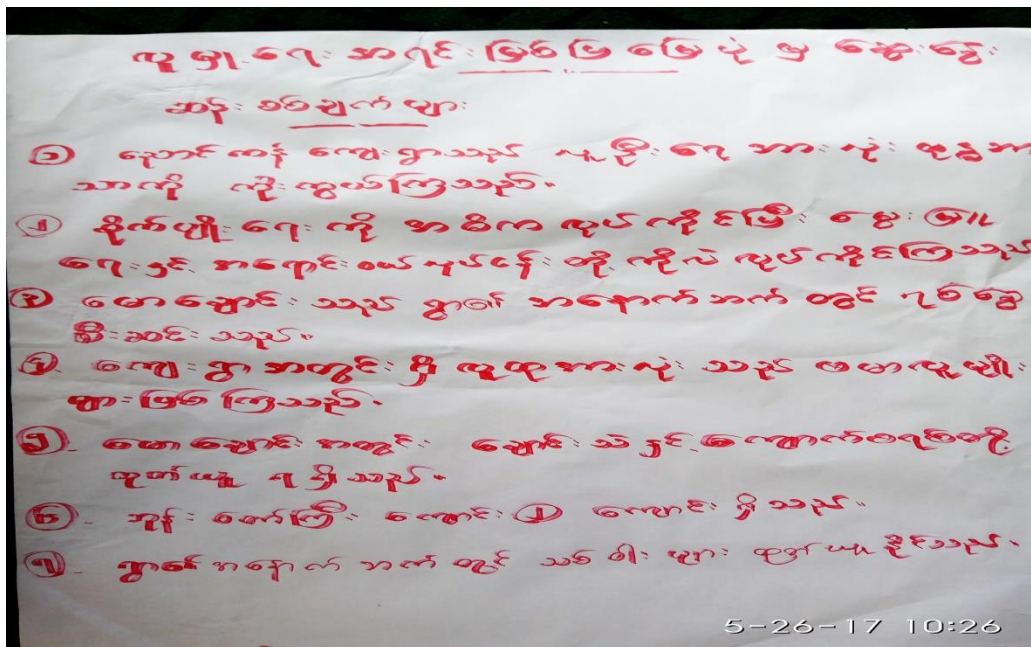 လူမှုရေး အရင်းမြစ်ပြမြေပုံမှ ဆွေးနွေး
ဆန်းစစ်ချက်များ
၁ ညောင်ကန် ကျေးရွာသည် လူဦးရေ အားလုံး ဗုဒ္ဓဘာ
သာကို ကိုးကွယ်ကြသည်။
၂ စိုက်ပျိုးရေးကို အဓိက လုပ်ကိုင်ပြီး မွေးမြူ
ရေးနှင့် အရောင်းဝယ်လုပ်ငန်းတို့ကိုလဲ လုပ်ကိုင်ကြသည်
၃ မောချောင်းသည် ရွာ၏ အနောက်ဘက်တွင် ၇စ်ခွေ
စီးဆင်းသည်။
၄ ကျေးရွာအတွင်းရှိ လူထုအားလုံးသည် ဗမာလူမျိုး
များဖြစ်ကြသည်။
၅ မောချောင်းအတွင်း ချောင်းသဲနှင့် ကျောက်စရစ်တို့
ထုတ်ယူ ရရှိသည်။
၆ ဘုန်းတော်ကြီး ကျောင်း ၂ ကျောင်းရှိသည်။
၇ ရွာ၏ အနောက်ဘက်တွင် သစ်ဝါးများ ထုတ်ယူနိုင်သည်။
5-26-17 10:26